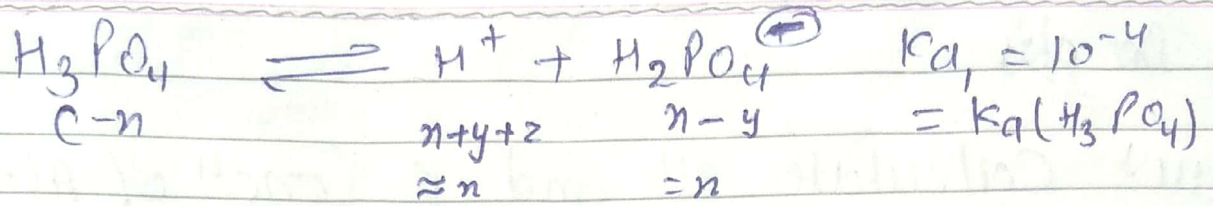 H₃PO₄ ⇌ H⁺ + H₂PO₄⁻ Ka₁ = 10⁻⁴
C-x x+y+z x-y = Ka(H₃PO₄)
≈x =x